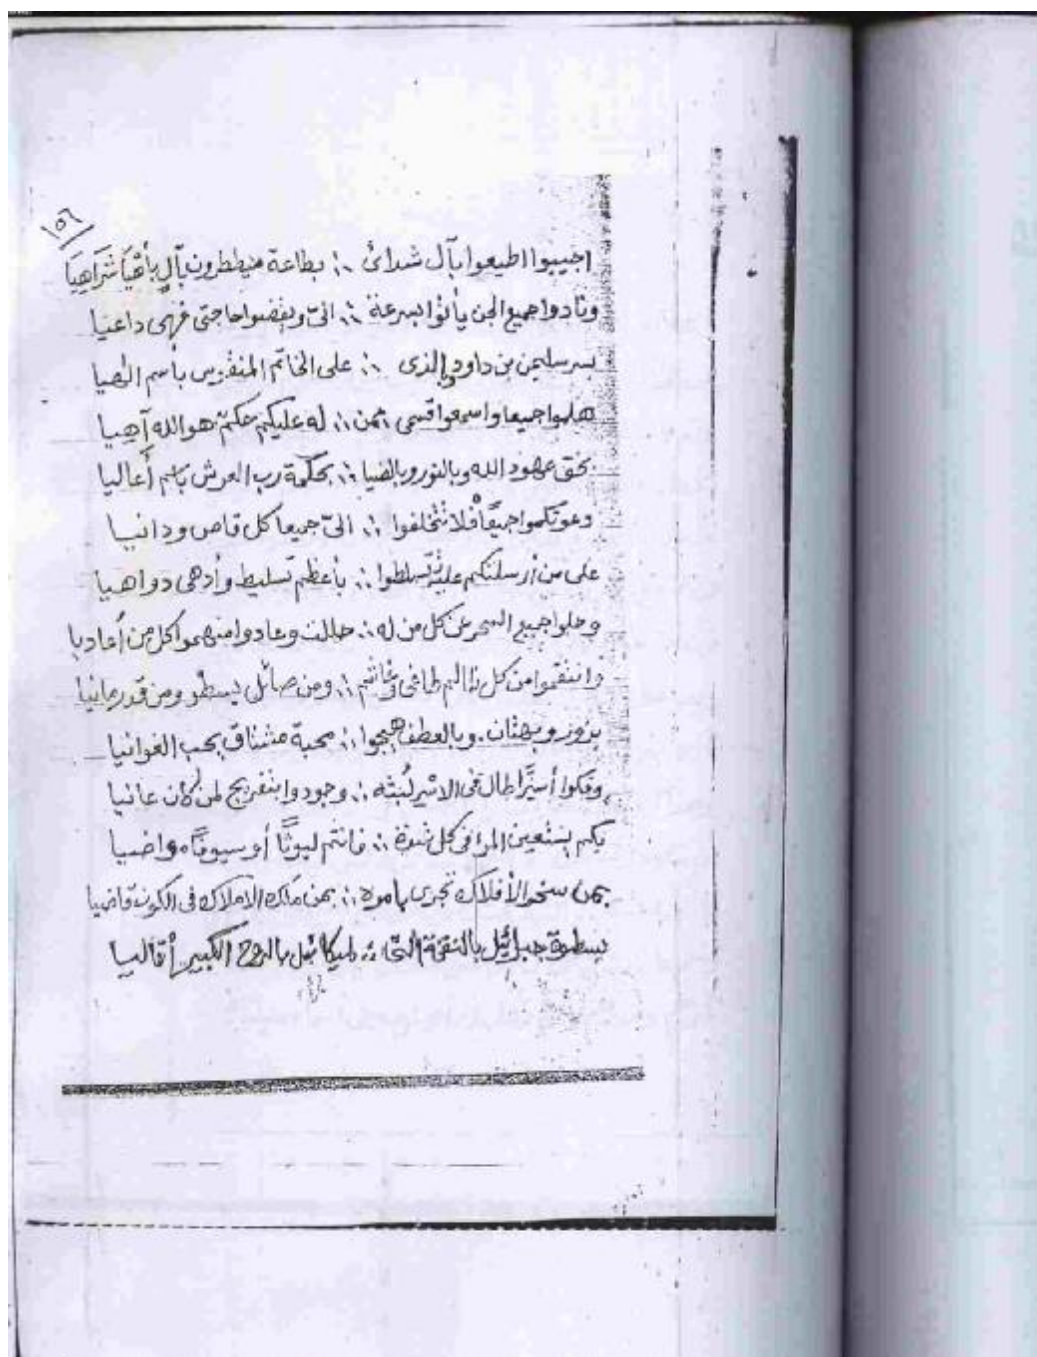 ١٥٦
اجيبوا اطيعوا بآل شدائ ؞ بطاعة ميططرون بآل بأهيا شراهيا
ونادوا جميع الجن يأتوا بسرعة ؞ الىّ ويقضوا حاجتى فهى داعيا
بسر سليمن بن داود والذى ؞ على الخاتم المنقوش باسم الهيا
هلموا جميعا واسمعوا قسمى بمن ؞ له عليكم حكم هو الله آهيا
بحق عهود الله وبالنور وبالضيا ؞ بحكمة رب العرش باسم أعاليا
دعوتكموا جميعًا فلا تتخلفوا ؞ الىّ جميعا كل قاص ودانيا
على من أرسلتكم عليه تسلطوا ؞ بأعظم تسليط وأدهى دواهيا
وحلوا جميع السحر عن كل من له ؞ حللت وعادوا منهموا كل من أعاديا
وانتقموا من كل ظالم طاغى وغاشم ؞ ومن صائل يسطو ومن قد رمانيا
بزور وبهتان . وبالعطف هيجوا ؞ محبة مشتاق بحب الغوانيا
وفكوا أسيرًا طال فى الاسر لبثه ؞ وجودوا بتفريج لمن كان عانيا
بكم يستعين المرا فى كل شدة ؞ فانتم ليوثًا أو سيوفًا مواضيا
بمن سخر الأفلاك تجرى بامره ؞ بمن ملك الاملاك فى الكون قاضيا
بسطوة جبرائيل بالنفخة التى ؞ لميكائيل بالروح الكبير